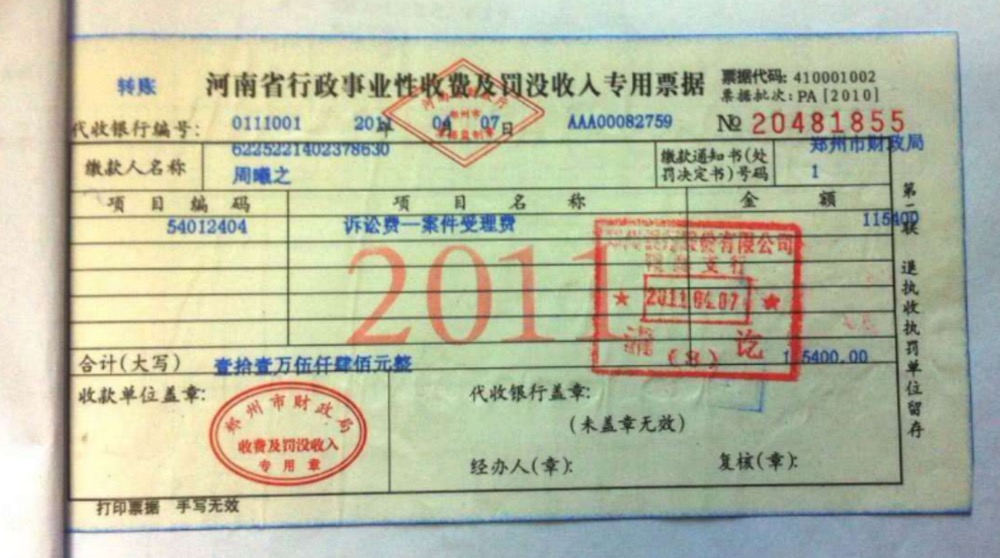 转账 河南省行政事业性收费及罚没收入专用票据 票据代码: 410001002
票据批次: PA [2010]
代收银行编号: 0111001 2011年 04 07日 AAA00082759 № 20481855
6225221402378630 郑州市财政局
缴款人名称 周曦之 缴款通知书(处罚决定书)号码 1
项目编码 项目名称 金额
54012404 诉讼费—案件受理费 115400
2011
股份有限公司
支行
★ 2011.04.07 ★
讫
(8)
合计(大写) 壹拾壹万伍仟肆佰元整 115400.00
收款单位盖章: 代收银行盖章:
(未盖章无效)
郑州市财政局
收费及罚没收入
专用章
经办人(章): 复核(章):
打印票据 手写无效
第一联 退执收执罚单位留存